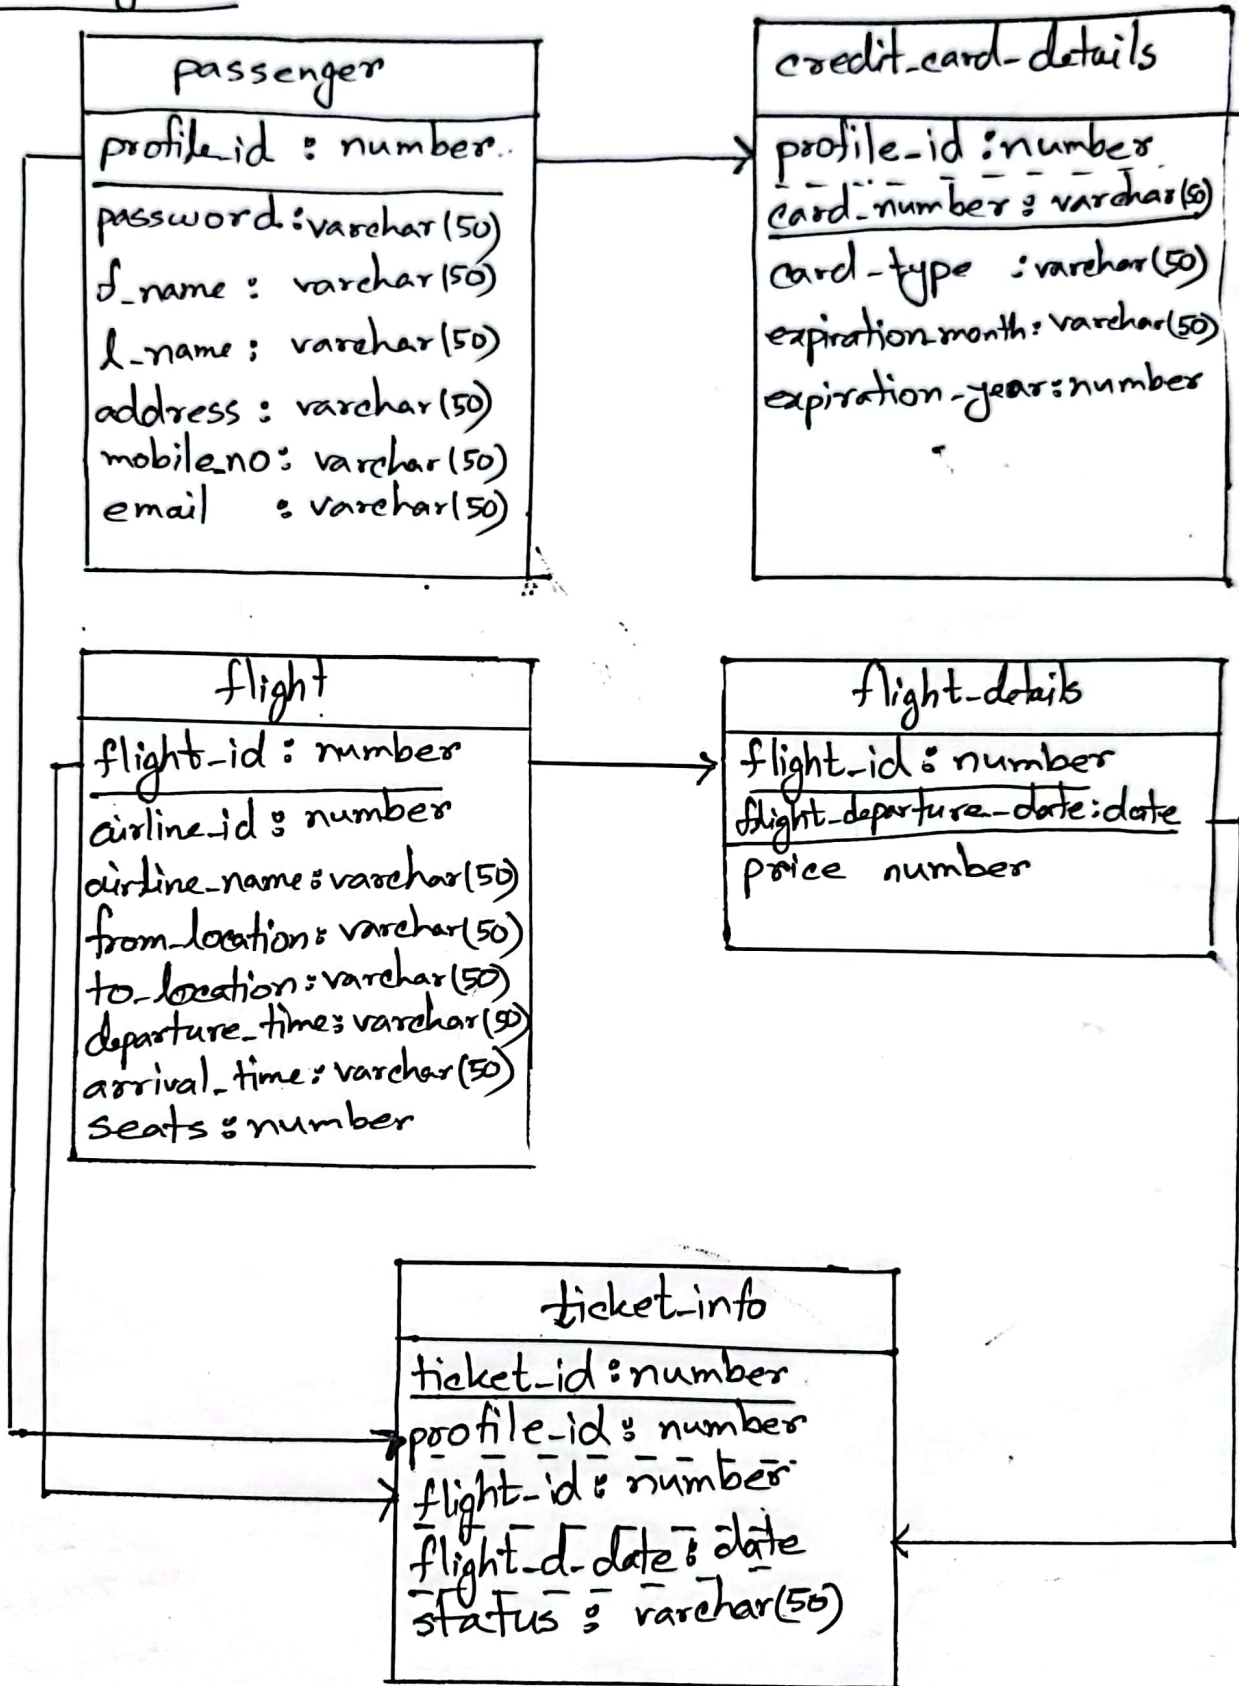 passenger
profile_id : number
password : varchar(50)
f_name : varchar(50)
l_name : varchar(50)
address : varchar(50)
mobile_no : varchar(50)
email : varchar(50)
credit_card_details
profile_id : number
card_number : varchar(50)
card_type : varchar(50)
expiration_month : varchar(50)
expiration_year : number
flight
flight_id : number
airline_id : number
airline_name : varchar(50)
from_location : varchar(50)
to_location : varchar(50)
departure_time : varchar(50)
arrival_time : varchar(50)
seats : number
flight_details
flight_id : number
flight_departure_date : date
price number
ticket_info
ticket_id : number
profile_id : number
flight_id : number
flight_d_date : date
status : varchar(50)